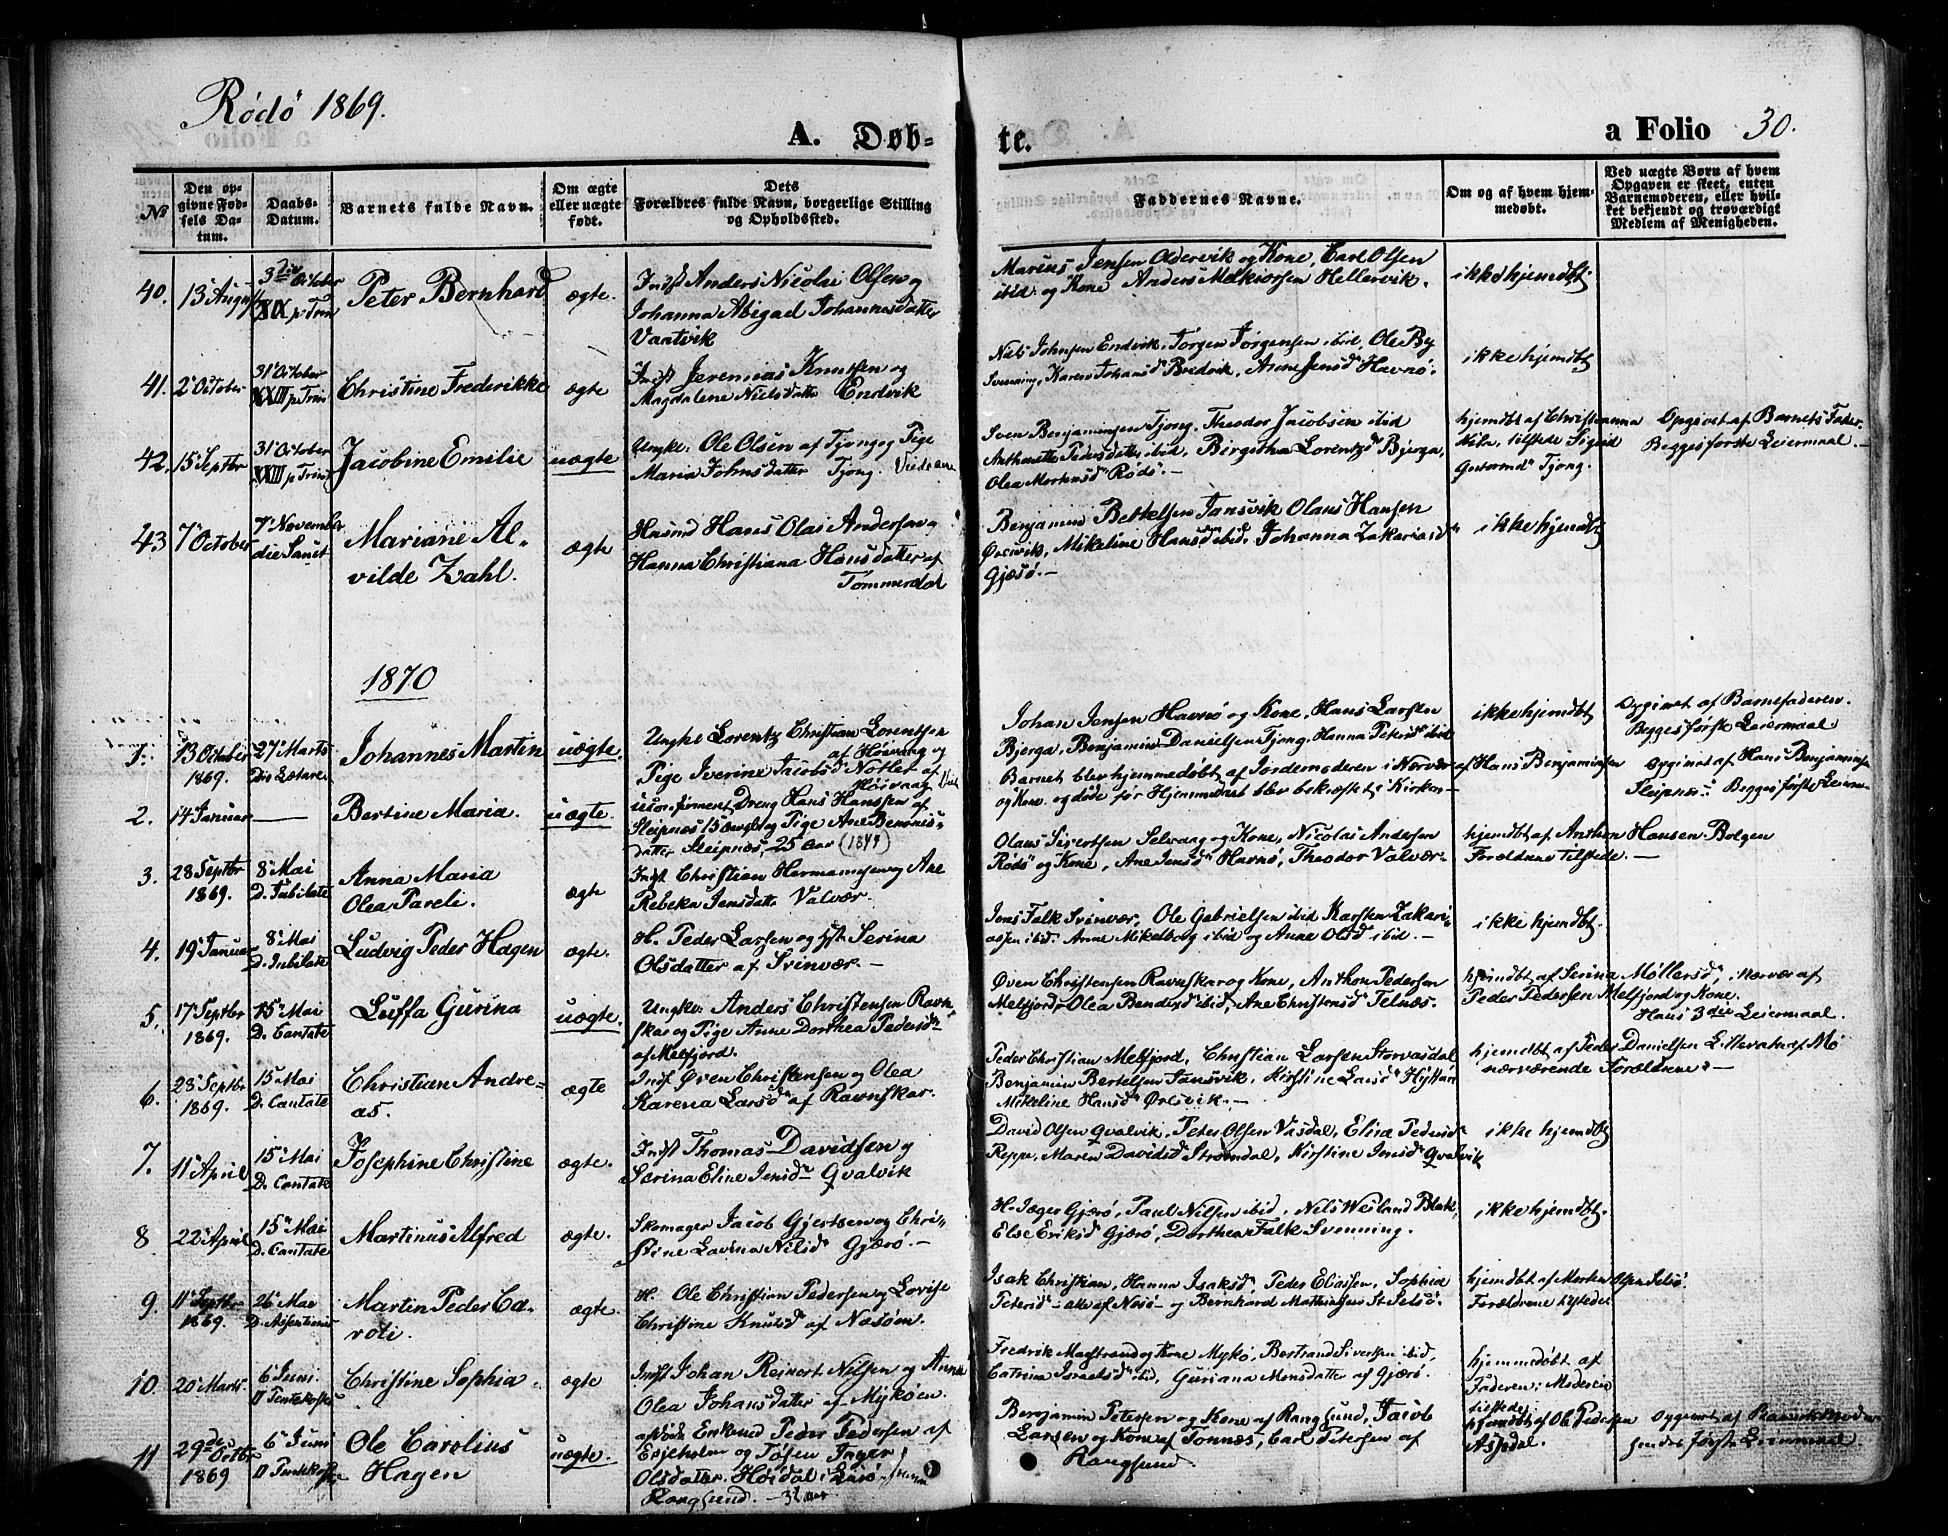 Rödö 1869.
A. Døb-
te.
a Folio 30.
№
Den op-
givne Fød-
sels Da-
tum.
Daabs-
Datum.
Barnets fulde Navn.
Om ægte
eller uægte
født.
Dets
Forældres fulde Navn, borgerlige Stilling
og Opholdssted.
Faddernes Navne.
Om og af hvem hjem-
medøbt.
Ved uægte Børn af hvem
Opgaven er skeet, enten
Barnemoderen, eller hvil-
ket bekjendt og troværdigt
Medlem af Menigheden.
40.
13 August
3die October
XIX p Trin
Peter Bernhard
ægte
Indst Anders Nicolai Olsen og
Johanna Abigael Johannesdatter
Vaatvik
Marius Jensen Oldervik og Kone, Carl Olsen
ibid. og Kone Anders Melkiorsen Hellervik.
ikke hjemdøbt
41.
2 October
31 October
XXIII p Trin
Christine Frederikke
ægte
Indst Jeremias Knutsen og
Magdalene Nielsdatter Endvik
Niels Johnsen Endvik, Jørgen Jørgensen ibid, Ole By
Svenning, Karen Johansd Bredvik, Anne Jensd Havnø.
ikke hjemdøbt
42.
15 Septbr
31 October
XXIII p Trin
Jacobine Emilie
uægte
Ungk. Ole Olsen af Tjong og Pige
Maria Johnsdatter Tjong.
Sven Benjaminsen Tjong, Theodor Jacobsen ibid
Anthonette Pedersdatter ibid, Bergitha Lorentzd Bjerga,
Olea Mortensd Rödö. -
hjemdøbt af Christianna
Kila, tilstede Sigrid
Guttormd Tjong.
Opgivet af Barnets Fader
Begges første Leiermaal. -
43
7 October
7 November
die Sanct
Mariane Al-
vilde Zahl.
ægte
Husmd Hans Olai Andersen og
Hanna Christiana Hansdatter af
Tømmerdal
Benjamin Bertelsen Tansvik Olaus Hansen
Ørsvik, Mikeline Hansd ibid, Johanna Zakariasd
Gjæsø. -
ikke hjemdøbt
1870
1.
13 October
1869.
27 Marts
Dis Lætare
Johannes Martin
uægte.
Ungk Lorentz Christian Lorentsen
af Høivaag og
Pige Iverine Jacobsd Notler af
Høivaag
Johan Jensen Havnø og Kone, Hans Larsen
Bjerga, Benjamin Danielsen Tjong, Hanna Petersd ibid
ikke hjemdøbt
Opgivet af Barnefaderen.
Begges første Leiermaal
2.
14 Januar
Bertine Maria.
uægte.
uconfirmert Dreng Hans Hanssen af
Sleipnes 15 aar og Pige Ane Beronis-
datter Sleipnes, 25 Aar (1844)
Barnet blev hjemmedøbt af Jordemoderen i Nærvær af Hans Benjaminsen
og Kone og døde før Hjemmedaab blev bekræftet i Kirken -
Opgivet af Hans Benjaminsen
Sleipnes. Begges første Leierm
3.
28 Septbr
1869.
8 Mai
D. Jubilate
Anna Maria
Olea Pareli.
ægte
Indst Christian Hermansen og Ane
Rebeka Jensdatter Valvær.
Olaus Sivertsen Selvaag og Kone, Nicolai Andersen
Rödö og Kone, Ane Jensd Havnø, Theodor Valvær
hjemdøbt af Anthon Hansen Bolgen
Forældrene tilstede. -
4.
19 Januar
8 Mai
D. Jubilate
Ludvig Peder Hagen
ægte.
H. Peder Larsen og Hst Serina
Olsdatter af Svinvær. -
Jens Falk Svinvær, Ole Gabrielsen ibid Karsten Zakari-
assen ibid. Anne Mikelborg ibid og Anne Olsd ibid. -
ikke hjemdøbt.
5.
17 Septbr
1869.
15 Mai
D. Cantate
Luffa Gurina
uægte.
Ungkr Anders Christensen Ravn
skar og Pige Anne Dorthea Pedersd
af Melfjord.
Øven Christensen Ravnskar og Kone, Anthon Pedersen
Melfjord, Olea Bendixd ibid, Ane Christensd Telnæs.
hjemdøbt af Serina Møllersd i nærvær af
Peder Pedersen Melfjord og Kone.
Hans 3die Leiermaal.
6.
28 Septbr
1869.
15 Mai
D. Cantate
Christian Andre-
as.
ægte
Inds Øven Christensen og Olea
Karena Larsd af Ravnskar.
Peder Christian Melfjord, Christian Larsen Storvasdal
Benjamin Bertelsen Tansvik, Kirstine Larsd
Mikeline Hansd Ørsvik. -
hjemdøbt af Peder Danielsen Littevatn af Mo
nærværende Forældrene. -
7.
11 April
15 Mai
D. Cantate
Josephine Christine
ægte.
Indst Thomas Davidsen og
Særina Eline Jensd Qvalvik
David Olsen Qvalvik, Peter Olsen Vasdal, Elise Pedersd
Reppe, Maren Davidsd Strømdal, Kirstine Jensd Qvalvik
ikke hjemdøbt
8
22 April
15 Mai
D. Cantate
Martinus Alfred
ægte.
Skomager Jacob Gjertsen og Chri-
stine Lavina Nilsd Gjærø. -
H. Jæger Gjærø, Paul Nilsen ibid, Nels Wesland
Else Eriksd Gjærø, Dorthea Falk Svenning.
ikke hjemdøbt.
9.
11 Septbr
1869.
26 Mai
Martin Peder Ca-
roli.
ægte.
H. Ole Christian Pedersen og Lovise
Christine Knutsd af Næsøen.
Isak Christian, Hanna Isaksd, Peder Eliassen, Sophia
Petersd - alle af Nesø - og Bernhard Mathiassen St Selsø.
hjemdøbt af Morten Olsen Selsø
Forældrene tilstede
10.
20 Marts.
6 Juni
II Pentekoste
Christine Sophia.
ægte
Indst Johan Reinert Nilsen og Anna
Olea Johansdatter af Mykøen.
Fredrik Magstrand og Kone Mykø, Bertrand Sivertsen ibid,
Catrina Israelsd ibid, Guriana Monsdatter af Gjærø.
hjemmedøbt af
Faderen; Moderen
tilstede.
11
29de Octbr
1869
6 Juni
II Pentekoste
Ole Carolius
Hagen
uægte.
Enkemd Peder Pedersen af
Esjeholm og Tøsen Inger
Olsdatter. Høidal i Lurø
Rangsund. - 32 aar
Benjamin Petersen og Kone af Rangsund, Jacob
Larsen og Kone af Tonnes, Carl Petersen af
Rangsund
hjemdøbt af Ole Pedersen
Asfjedal.
Opgivet af
hendes første Leiermaal.